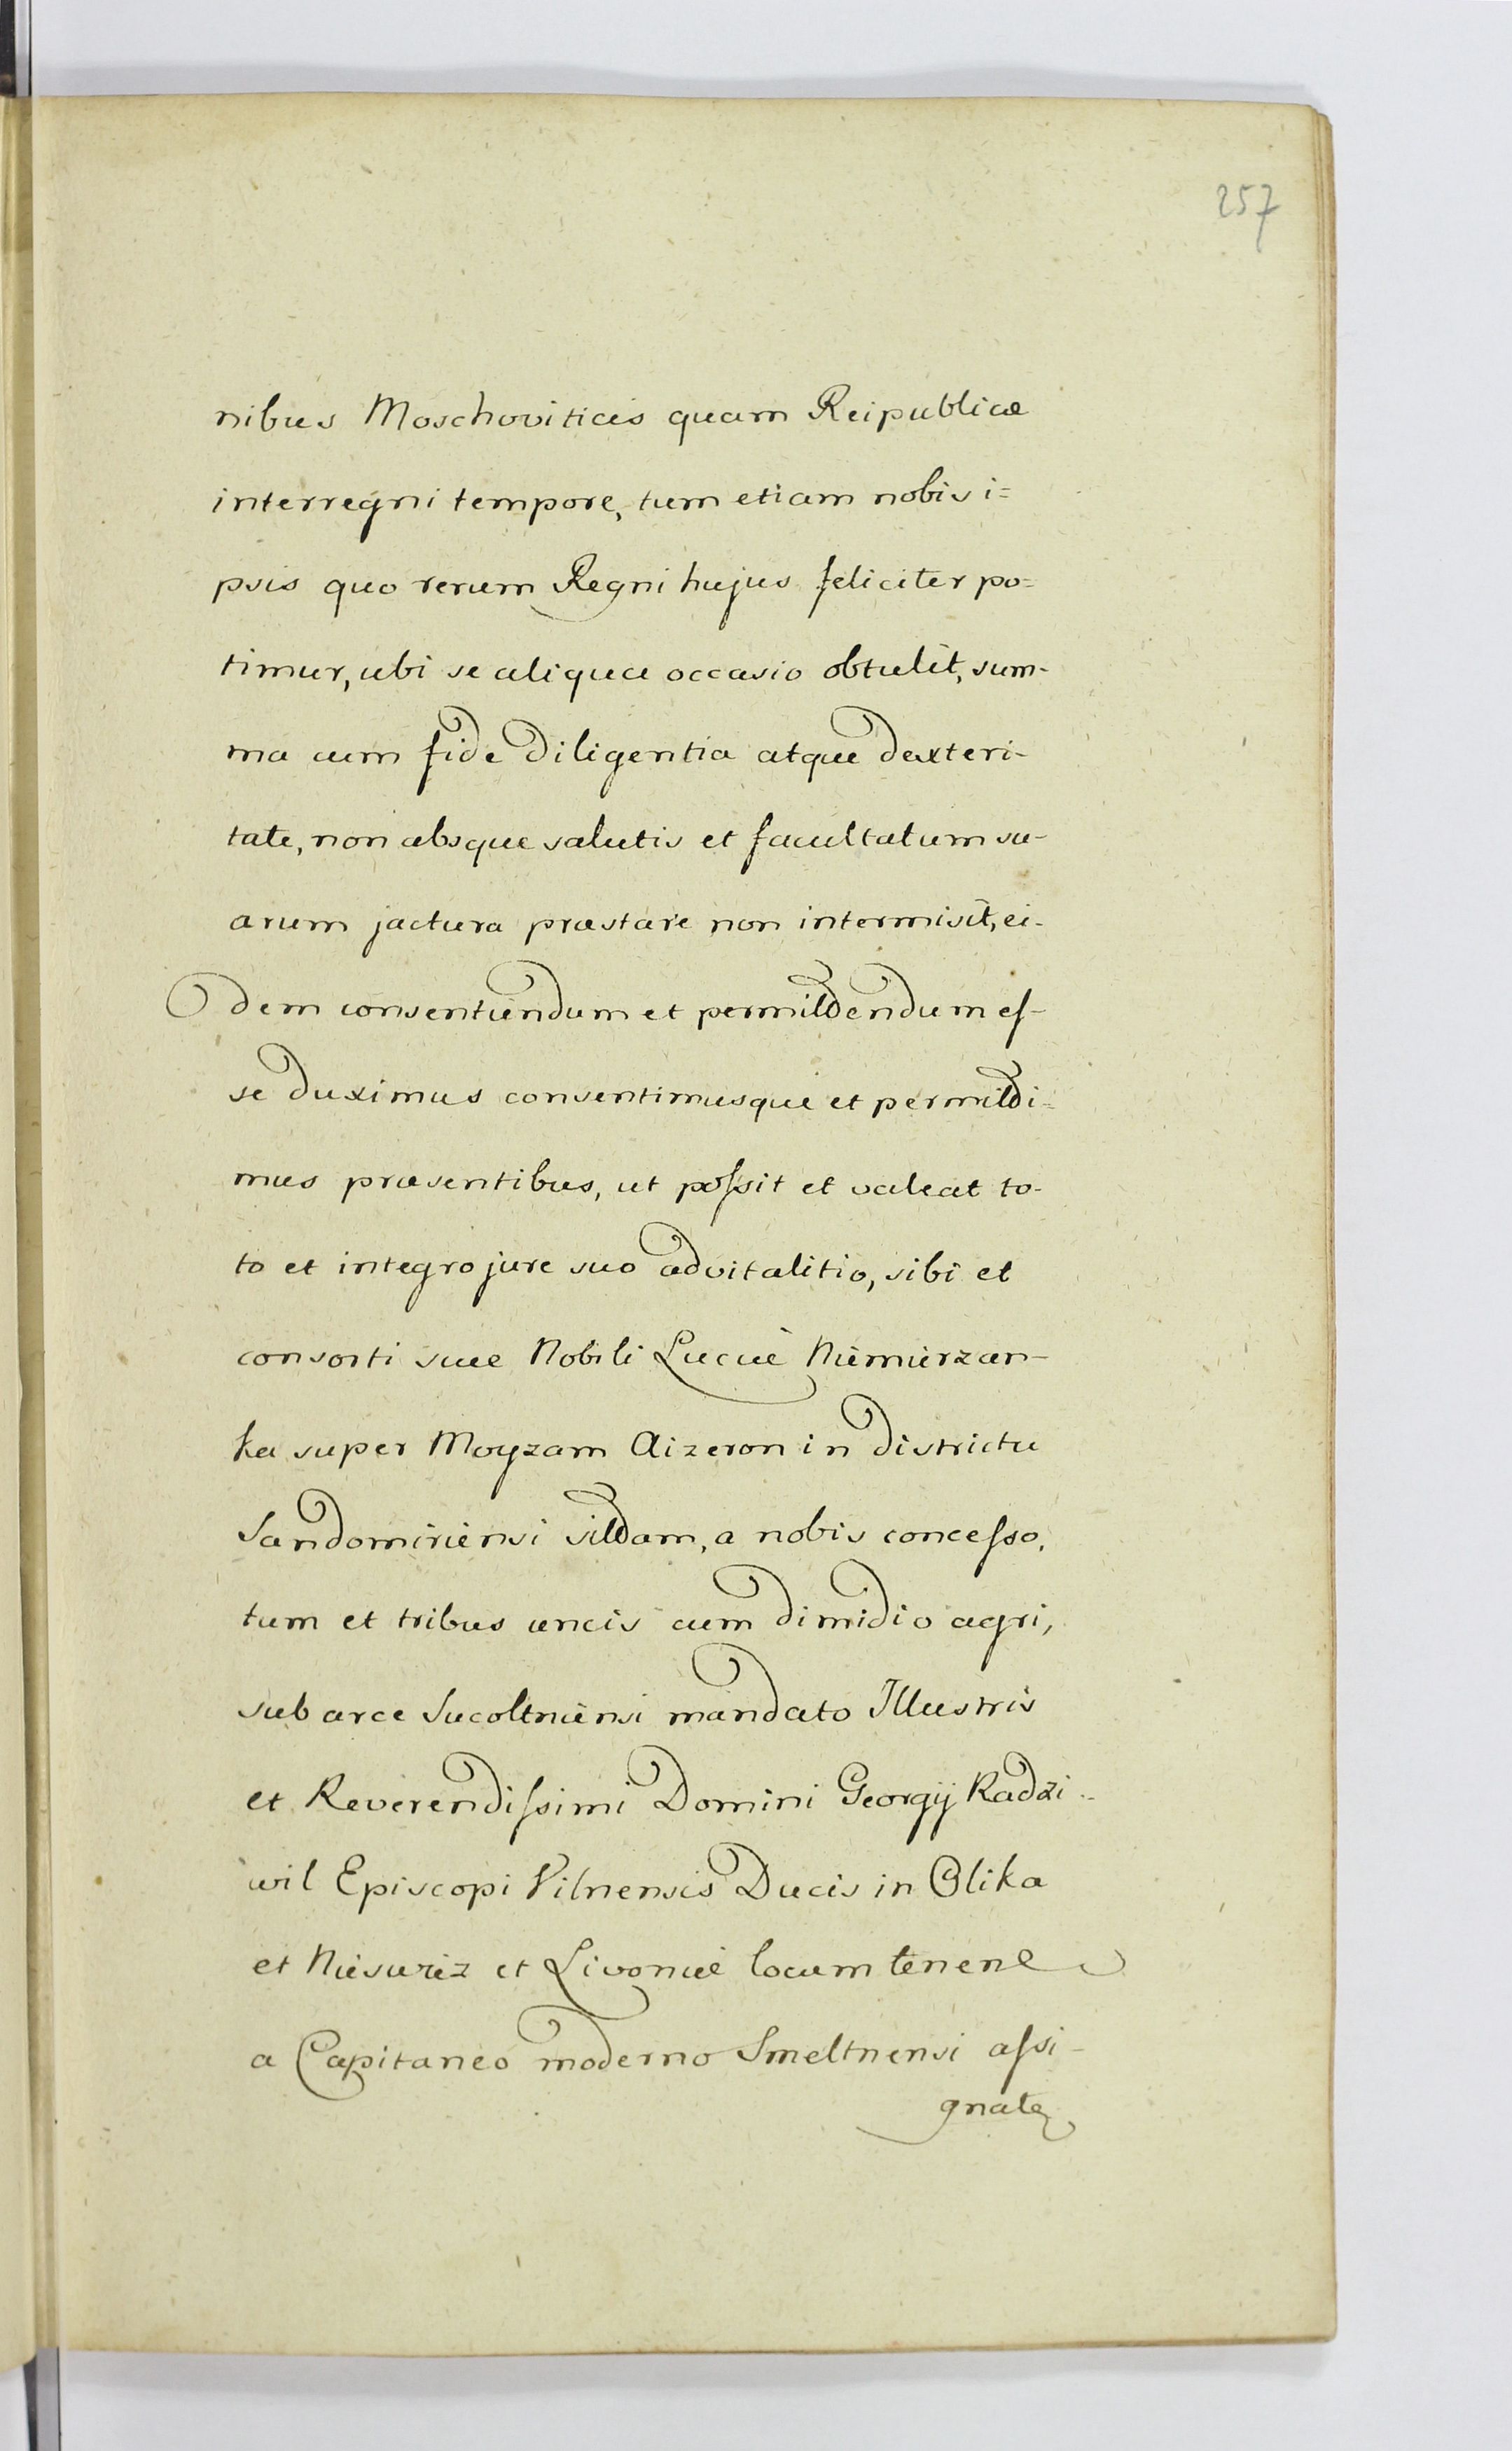 257
nibus Moschoviticis quam Reipublicæ
interregni tempore, tum etiam nobis i=
psis quo rerum Regni hujus feliciter po=
timur, ubi se aliqua occasio obtulit, sum-
ma cum fide diligentia atque dexteri-
tate, non absque salutis et facultatum su-
arum jactura præstare non intermisit, ei-
dem consentiendum et permittendum eſ-
se duximus consentimusque et permitti=
mus præsentibus, ut poſsit et valeat to-
to et integro jure suo advitalitio, sibi et
consorti suæ Nobili Luciæ Niemierzan-
ka super Moyzam Aizeron in districtu
Sandomiriensi sittam, a nobis conceſso,
tum et tribus uncis cum dimidio agri,
sub arce Sucoltniensi mandato Illustris
et Reverendiſsimi Domini Georgij Radzi-
wil Episcopi Vilnensis Ducis in Olika
et Niesuriz et Livoniæ locum tenen
a Capitaneo moderno Smeltnensi aſsi-
gnatę